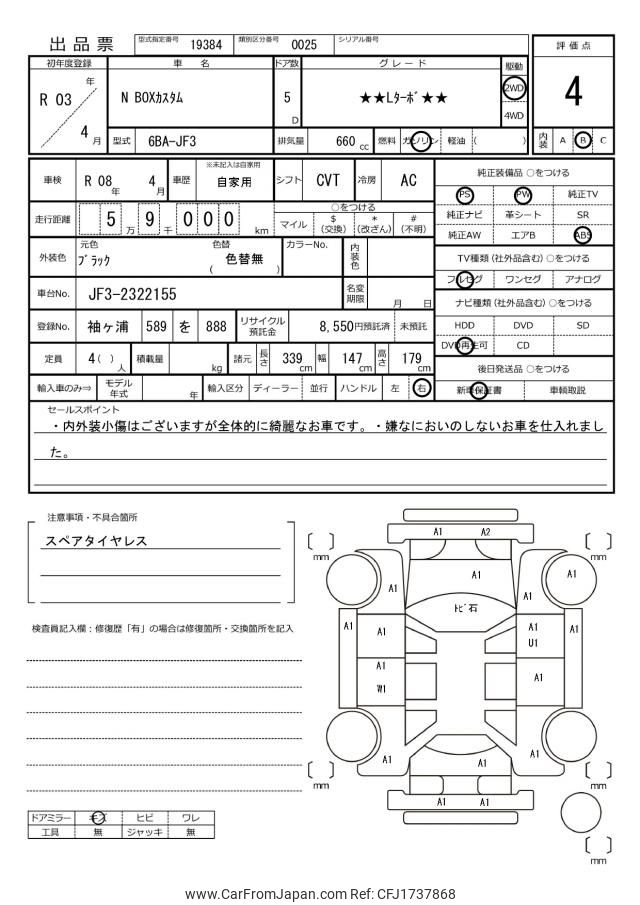 出品票 型式指定番号 19384 類別区分番号 0025 シリアル番号
評価点
4
初年度登録 車名 ドア数 グレード 駆動
R 03 年 4 月
N BOXカスタム 5 D ★★Lターボ★★ 2WD 4WD
型式 6BA-JF3 排気量 660 cc 燃料 ガソリン 軽油 ( )
内装 A B C
車検 R 08 年 4 月 車歴 ※未記入は自家用 自家用 シフト CVT 冷房 AC
純正装備品 ○をつける
PS PW 純正TV
純正ナビ 革シート SR
純正AW エアB ABS
走行距離 5 9 0 0 0 万 千 km
○をつける
マイル $(交換) *(改ざん) #(不明)
外装色 元色 ブラック 色替 ( 色替無 ) カラーNo. 内装色
TV種類 (社外品含む) ○をつける
フルセグ ワンセグ アナログ
車台No. JF3-2322155 名変期限 月 日
ナビ種類 (社外品含む) ○をつける
HDD DVD SD
DVD再生可 CD
登録No. 袖ヶ浦 589 を 888 リサイクル預託金 8,550円預託済 未預託
定員 4( )人 積載量 kg 諸元 長さ 339 cm 幅 147 cm 高さ 179 cm
後日発送品 ○をつける
新車保証書 車輌取説
輸入車のみ⇒ モデル年式 年 輸入区分 ディーラー 並行 ハンドル 左 右
セールスポイント
・内外装小傷はございますが全体的に綺麗なお車です。・嫌なにおいのしないお車を仕入れまし
た。
注意事項・不具合箇所
スペアタイヤレス
検査員記入欄：修復歴「有」の場合は修復箇所・交換箇所を記入
ドアミラー キズ ヒビ ワレ
工具 無 ジャッキ 無
mm mm
A1 A2
A1 A1 A1 A1
トビ石
A1 A1 A1 U1 A1
A1 W1 A1
A1 A1 A1
A1 A1
mm mm
mm
www.CarFromJapan.com Ref: CFJ1737868